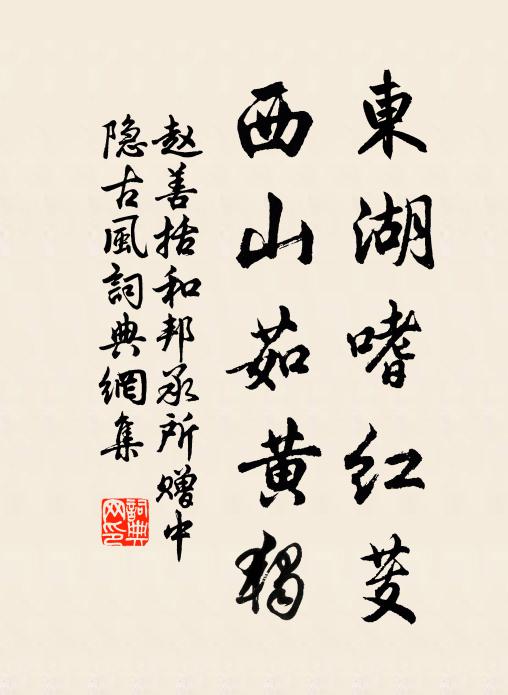 東湖嗜红芰
西山茹黄獨
赵善括和邦承所赠中
隐古風詞典網集
詞典网印